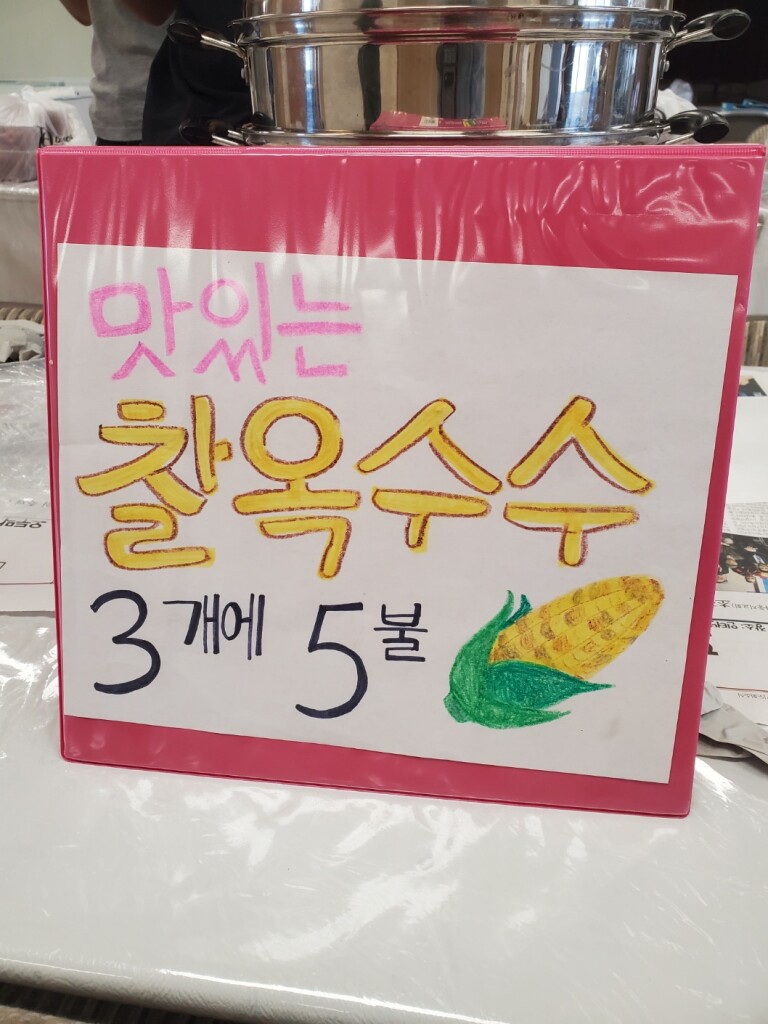 맛있는
찰옥수수
3개에 5불